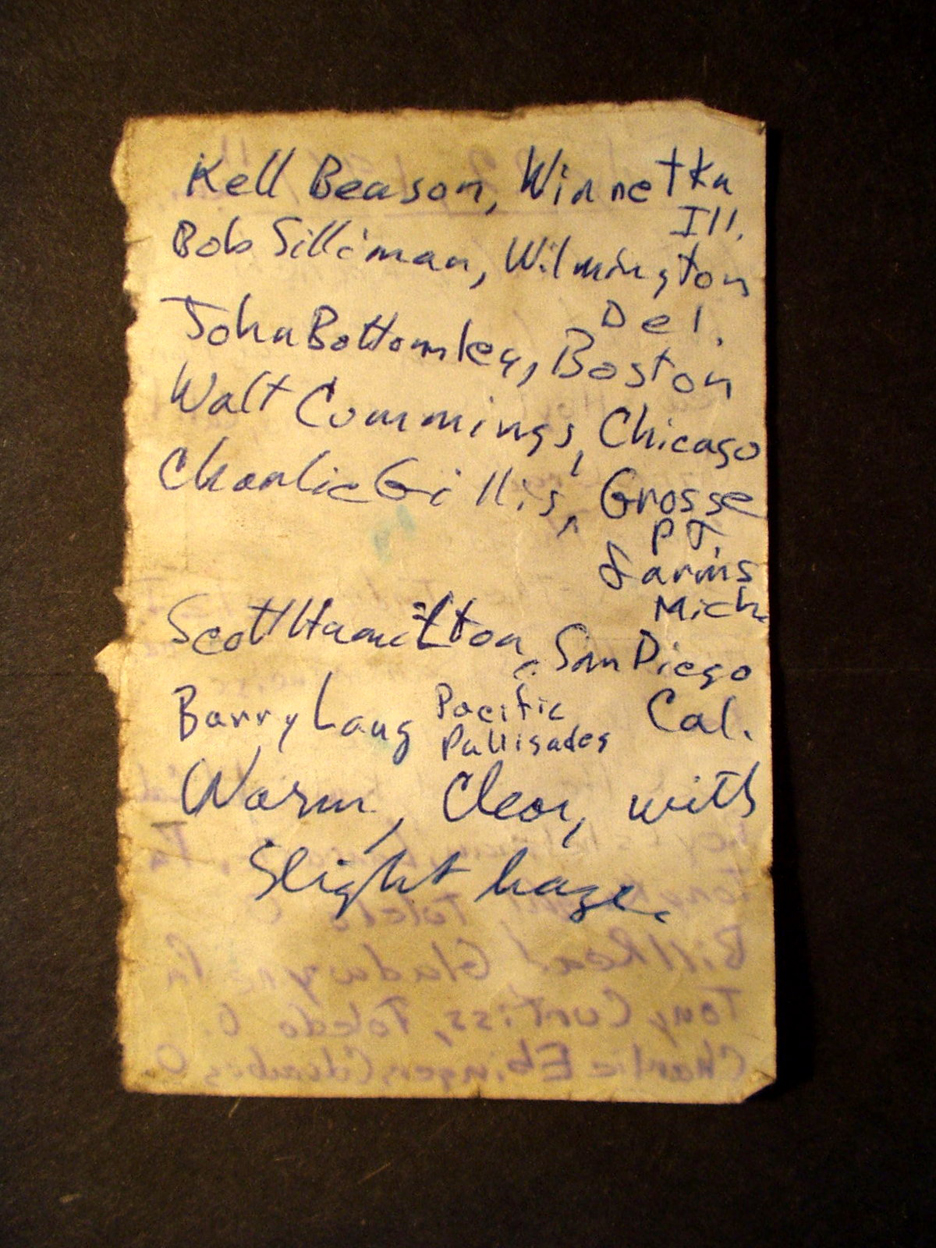 Kell Beason, Winnetka
Ill.
Bob Silliman, Wilmington
Del.
John Bottomley, Boston
Walt Cummings, Chicago
Charlie Gillis, Grosse
Pt.
Farms
Mich.
Scott Hamilton, San Diego
Cal.
Barry Laug Pacific
Pallisades
Warm, Clear, with
Slight haze.
Toledo O.
Bill Read Gladwyne Pa
Tony Curtiss, Toledo O.
Charlie Ebinger, O